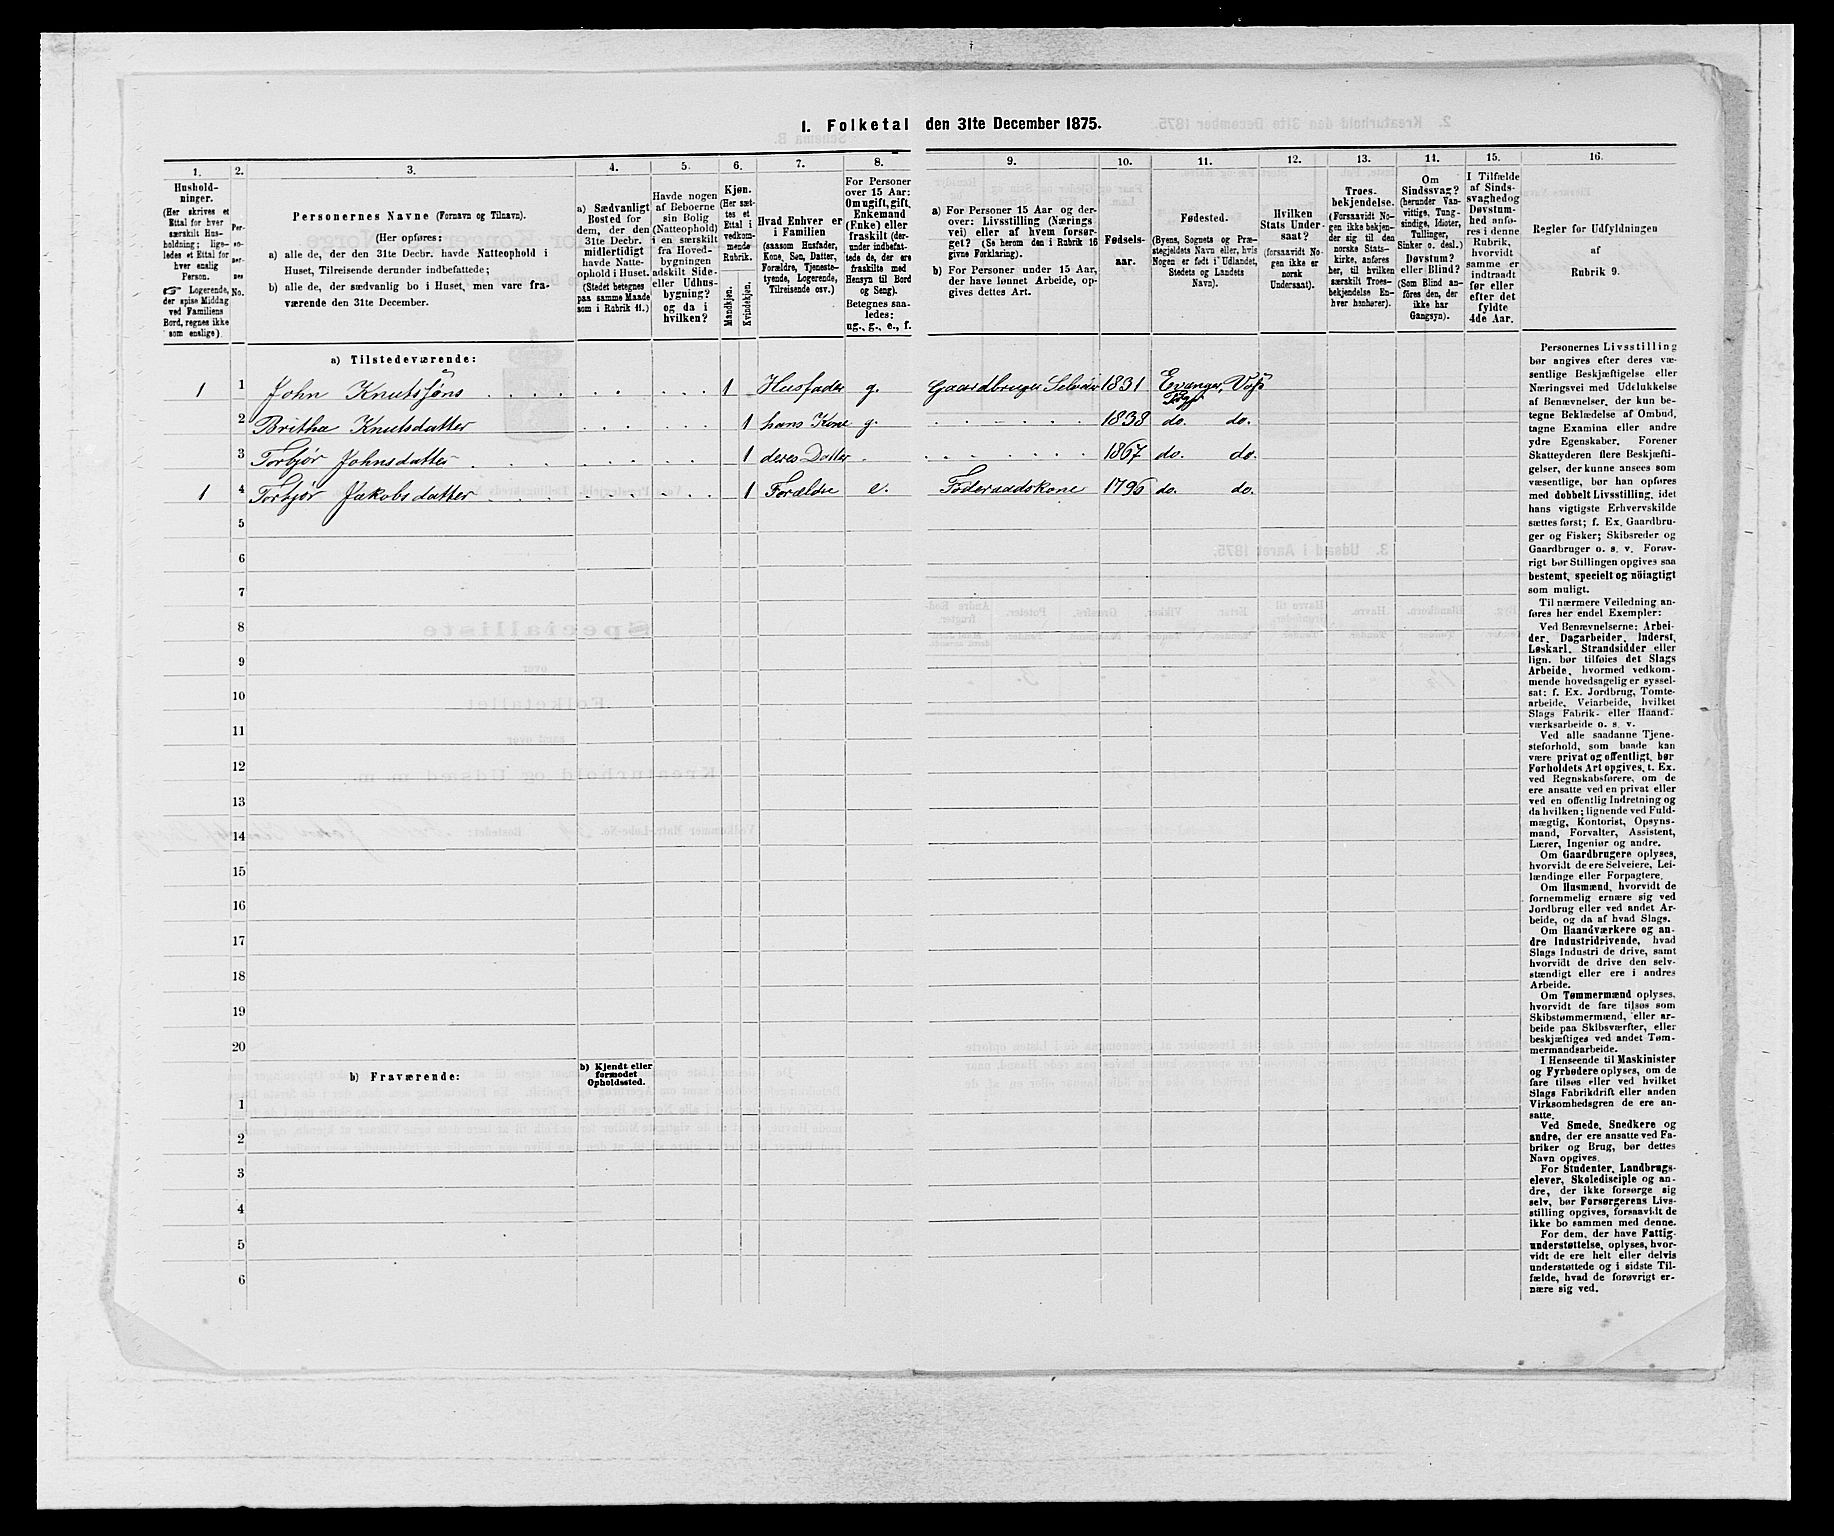 1. Folketal den 31te December 1875.
1. 2. 3. 4. 5. 6. 7. 8. 9. 10. 11. 12. 13. 14. 15. 16.
Hushold-
ninger.
(Her skrives et
Ettal for hver
særskilt Hus-
holdning; lige-
ledes et Ettal for
hver enslig
Person.
☞ Logerende,
der spise Middag
ved Familiens
Bord, regnes ikke
som enslige).
Per-
so-
ner-
nes
No.
Personernes Navne (Fornavn og Tilnavn).
(Her opføres:
a) alle de, der den 31te Decbr. havde Natteophold i
Huset, Tilreisende derunder indbefattede;
b) alle de, der sædvanlig bo i Huset, men vare fra-
værende den 31te December.
a) Sædvanligt
Bosted for
dem, der den
31te Decbr.
midlertidigt
havde Natte-
ophold i Huset.
(Stedet betegnes
paa samme Maade
som i Rubrik 11.)
Havde nogen
af Beboerne
sin Bolig
(Natteophold)
i en særskilt
fra Hoved-
bygningen
adskilt Side-
eller Udhus-
bygning?
og da i
hvilken?
Kjøn.
(Her sæt-
tes et
Ettal i
vedkom-
mende
Rubrik.
Mandkjøn.
Kvindekjøn.
Hvad Enhver er
i Familien
(saasom Husfader,
Kone, Søn, Datter,
Forældre, Tjeneste-
tyende, Logerende,
Tilreisende osv.)
For Personer
over 15 Aar:
Om ugift, gift,
Enkemand
(Enke) eller
fraskilt (der-
under indbefat-
tede de, der ere
fraskilte med
Hensyn til Bord
og Seng).
Betegnes saa-
ledes:
ug., g., e., f.
a) For Personer 15 Aar og der-
over: Livsstilling (Nærings
vei) eller af hvem forsør-
get? (Se herom den i Rubrik 16
givne Forklaring).
b) For Personer under 15 Aar,
der have lønnet Arbeide, op-
gives dettes Art.
Fødsels-
aar.
Fødested.
(Byens, Sognets og Præ-
stegjeldets Navn eller, hvis
Nogen er født i Udlandet,
Stedets og Landets
Navn).
Hvilken
Stats Under-
saat?
(forsaavidt No-
gen ikke er
norsk
Undersaat).
Troes-
bekjendelse.
(Forsaavidt No-
gen ikke bekjen-
der sig til den
norske Stats-
kirke, anføres
her, til hvilken
særskilt Troes-
bekjendelse En-
hver hanhører).
Om
Sindssvag?
(herunder Van-
vittige, Tung-
sindige, Idioter,
Tullinger,
Sinker o. desl.)
Døvstum?
eller Blind?
(Som Blind an-
føres den, der
ikke har
Gangsyn).
I Tilfælde
af Sinds-
svaghedog
Døvstum-
hed anfø-
res i denne
Rubrik,
hvorvidt
samme er
indtraadt
før eller
efter det
fyldte
4de Aar.
Regler for Udfyldningen
af
Rubrik 9.
a) Tilstedeværende:
1 1 John Knutssøns 1 Husfader g. Gaardbruger Selveier 1831 Evanger, Voss
2 Britha Knutsdatter 1 hans Kone g. 1838 do. do.
3 Torbjør Johnsdatter 1 deres Datter 1867 do. do.
1 4 Torbjør Jakobsdatter 1 Forældre e. Føderaadskone 1796 do. do.
5
6
7
8
9
10
11
12
13
14
15
16
17
18
19
20
b) Fraværende:
b) Kjendt eller
formodet
Opholdssted.
1
2
3
4
5
6
Personernes Livsstilling
bør angives efter deres væ-
sentlige Beskjæftigelse eller
Næringsvei med Udelukkelse
af Benævnelser, der kun be-
tegne Beklædelse af Ombud,
tagne Examina eller andre
ydre Egenskaber. Forener
Skatteyderen flere Beskjæfti-
gelser, der kunne ansees som
væsentlige, bør han opføres
med dobbelt Livsstilling, idet
hans vigtigste Erhvervskilde
sættes først; f. Ex. Gaardbru-
ger og Fisker; Skibsreder og
Gaardbruger o. s. v. Forøv-
rigt bør Stillingen opgives saa
bestemt, specielt og nöiagtigt
som muligt.
Til nærmere Veiledning an-
føres her endel Exempler:
Ved Benævnelserne: Arbei-
der, Dagarbeider, Inderst,
Løskarl, Strandsidder eller
lign. bør tilføies det Slags
Arbeide, hvormed vedkom-
mende hovedsagelig er syssel-
sat: f. Ex. Jordbrug, Tomte-
arbeide, Veiarbeide, hvilket
Slags Fabrik- eller Haand-
værksarbeide o. s. v.
Ved alle saadanne Tjene-
steforhold, som baade kan
være privat og offentligt, bør
Forholdets Art opgives, t. Ex.
ved Regnskabsførere, om de
ere ansatte ved en privat eller
ved en offentlig Indretning og
da hvilken; lignende ved Fuld-
mægtig, Kontorist, Opsyns-
mand, Forvalter, Assistent,
Lærer, Ingeniør og andre.
Om Gaardbrugere oplyses,
hvorvidt de ere Selveiere, Lei-
lændinge eller Forpagtere.
Om Husmænd, hvorvidt de
fornemmelig ernære sig ved
Jordbrug eller ved andet Ar-
beide, og da af hvad Slags.
Om Haandværkere og an-
dre Industridrivende, hvad
Slags Industri de drive, samt
hvorvidt de drive den selv-
stændigt eller ere i andres
Arbeide.
Om Tømmermænd oplyses,
hvorvidt de fare tilsøs som
Skibstømmermænd, eller ar-
beide paa Skibsværfter, eller
beskjæftiges ved andet Tøm-
mermandsarbeide.
I Henseende til Maskinister
og Fyrbødere oplyses, om de
fare tilsøs eller ved hvilket
Slags Fabrikdrift eller anden
Virksomhedsgren de ere an-
satte.
Ved Smede, Snedkere og
andre, der ere ansatte ved Fa-
briker og Brug, bør dettes
Navn opgives.
For Studenter, Landbrugs-
elever, Skoledisciple og an-
dre, der ikke forsørge sig
selv, bør Forsørgerens Livs-
stilling opgives, forsaavidt de
ikke bo sammen med denne.
For dem, der have Fattig-
understøttelse, oplyses, hvor-
vidt de ere helt eller delvis
understøttede og i sidste Til-
fælde, hvad de forøvrigt er-
nære sig ved.